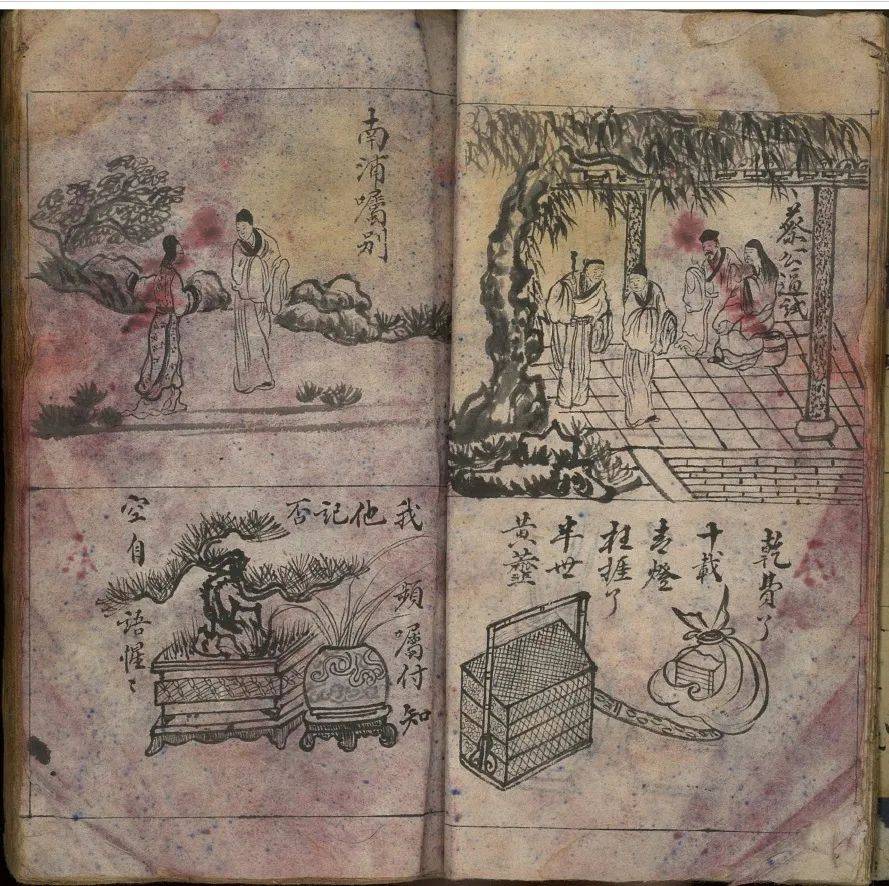 蔡公逼試
乾費了
十載
青燈
枉捱了
半世
黃虀
南浦囑別
我頻囑付知
他記否
空自語惺〻